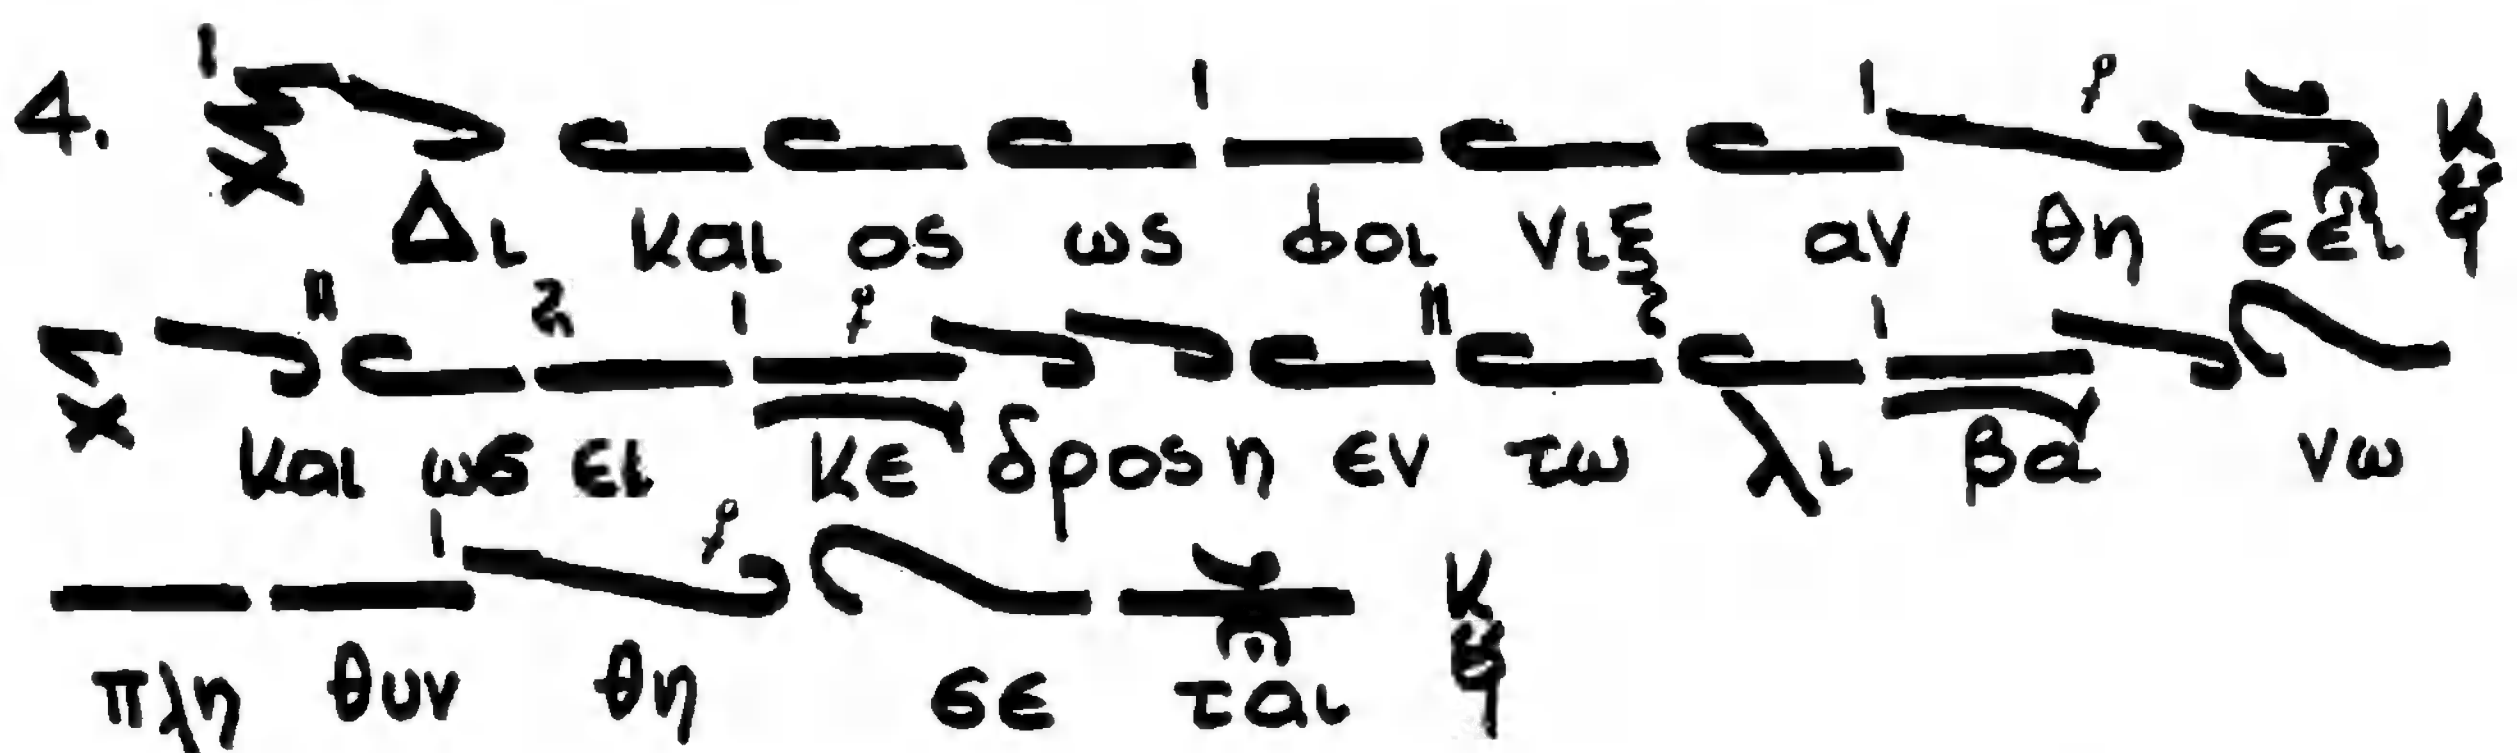 4. Δι και ος ως φοι νιξ αν θη σει
και ωσ ει κε δρος η εν τω λι βα νω
πλη θυν θη σε ται